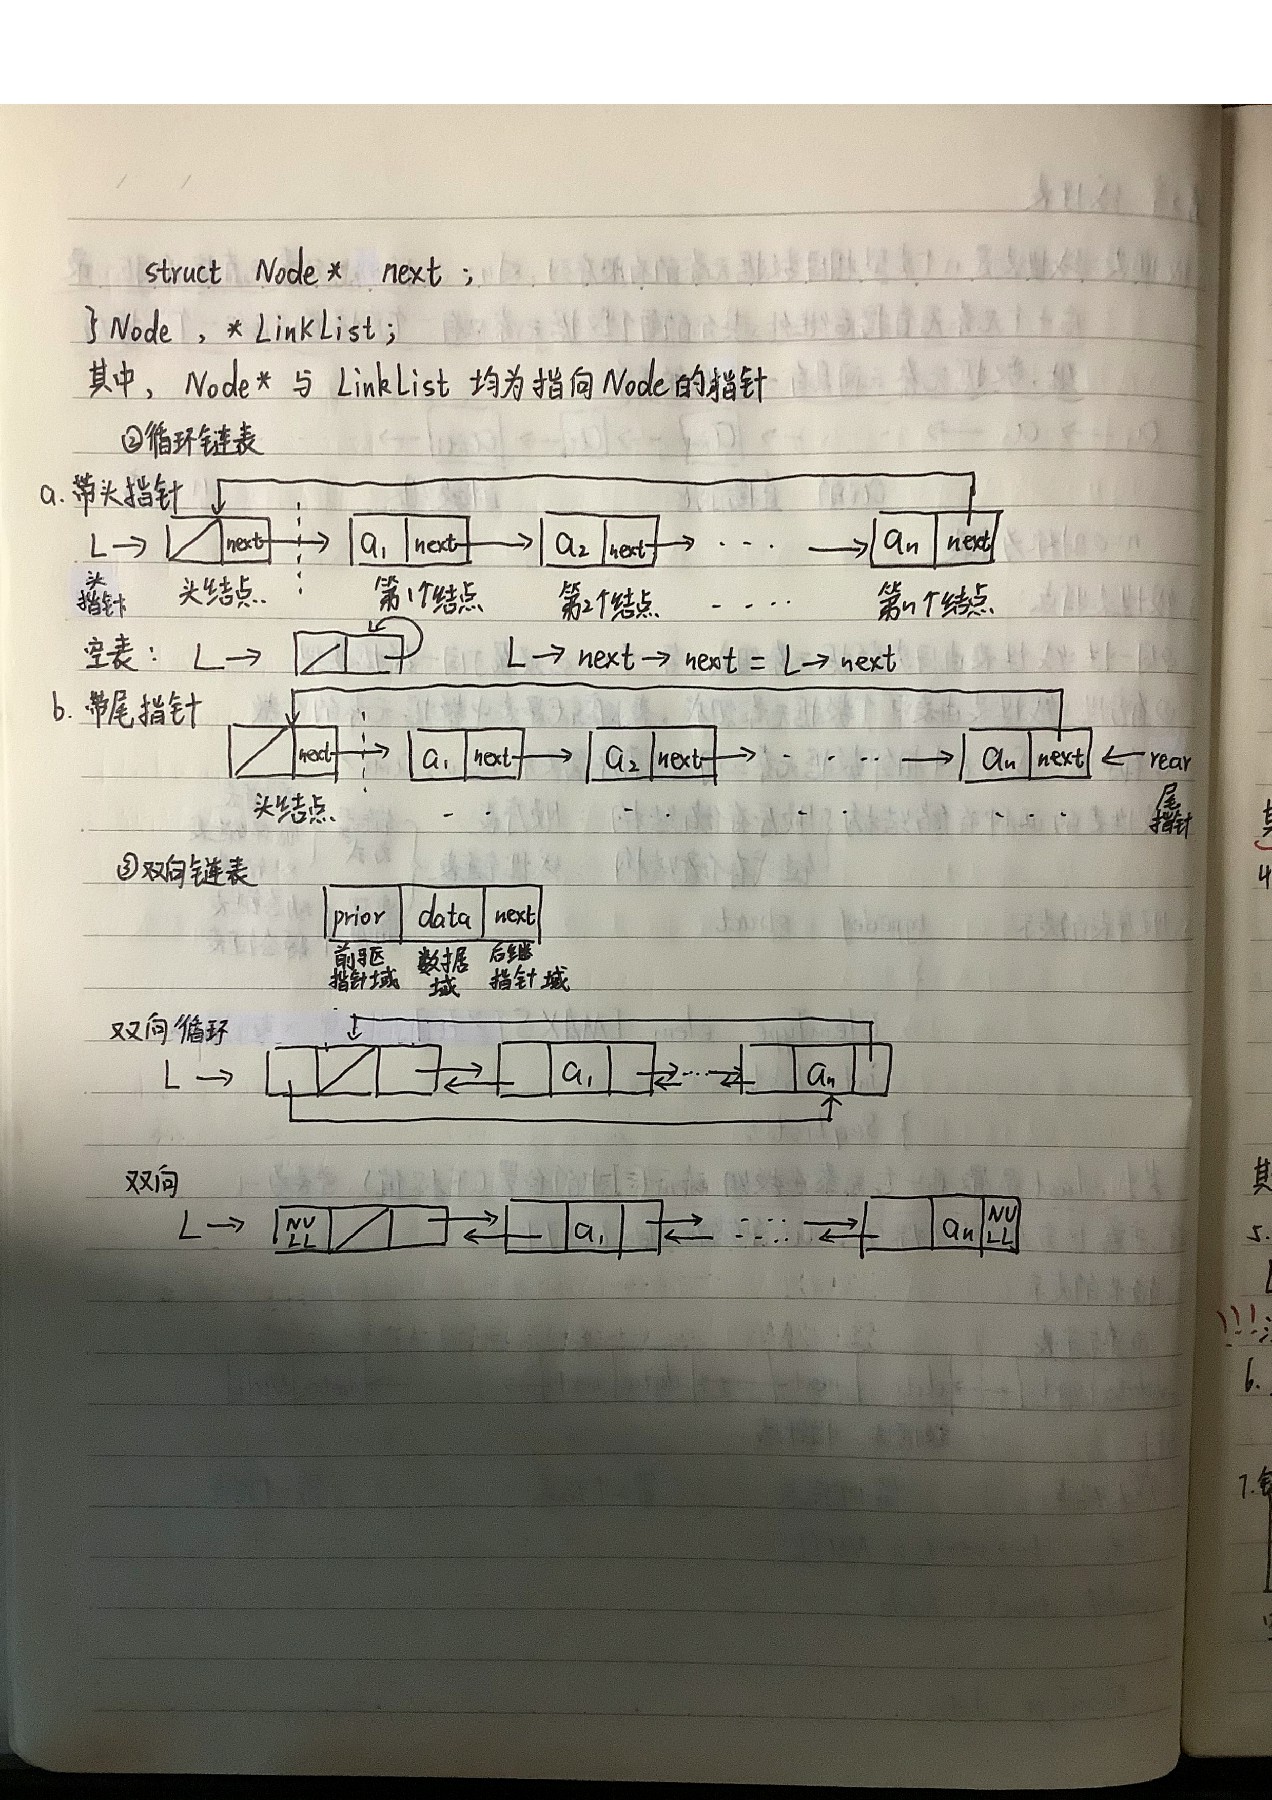 struct Node* next;
}Node, *LinkList;
其中, Node* 与 LinkList 均为指向Node的指针
②循环链表
a.带头指针
L→ next→ a₁ next→ a₂ next→ ···· → aₙ next
头指针 头结点 第1个结点 第2个结点 ···· 第n个结点
空表: L→ L→next→next=L→next
b.带尾指针
next→ a₁ next→ a₂ next→ ···· → aₙ next ←rear
头结点 尾指针
③双向链表
prior data next
前驱指针域 数据域 后继指针域
双向循环
L→ a₁ ··· aₙ
双向
L→ NULL a₁ ···· aₙ NULL
4
其
5.
!!!
6.
7.